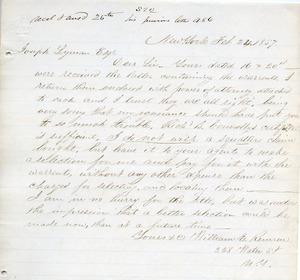 New York Feb 24 1857
Joseph Lyman Esq
Dear Sir Yours dated 16 & 20th
were received the latter containing the warrants I
return them endorsed with power of attorney attached
to each and I trust they are all right, being
very sorry that inconvenience should have put you
to so much trouble,
is sufficient, I do not wish a
but leave it to your agent to make
a selection for me and pay for it with the
warrants without any other expense than the
charges for selecting and locating them
I am in no hurry for the title, but was under
the impression that a better selection could be
made now than at a future time
Yours &c William
Water St
N.Y.